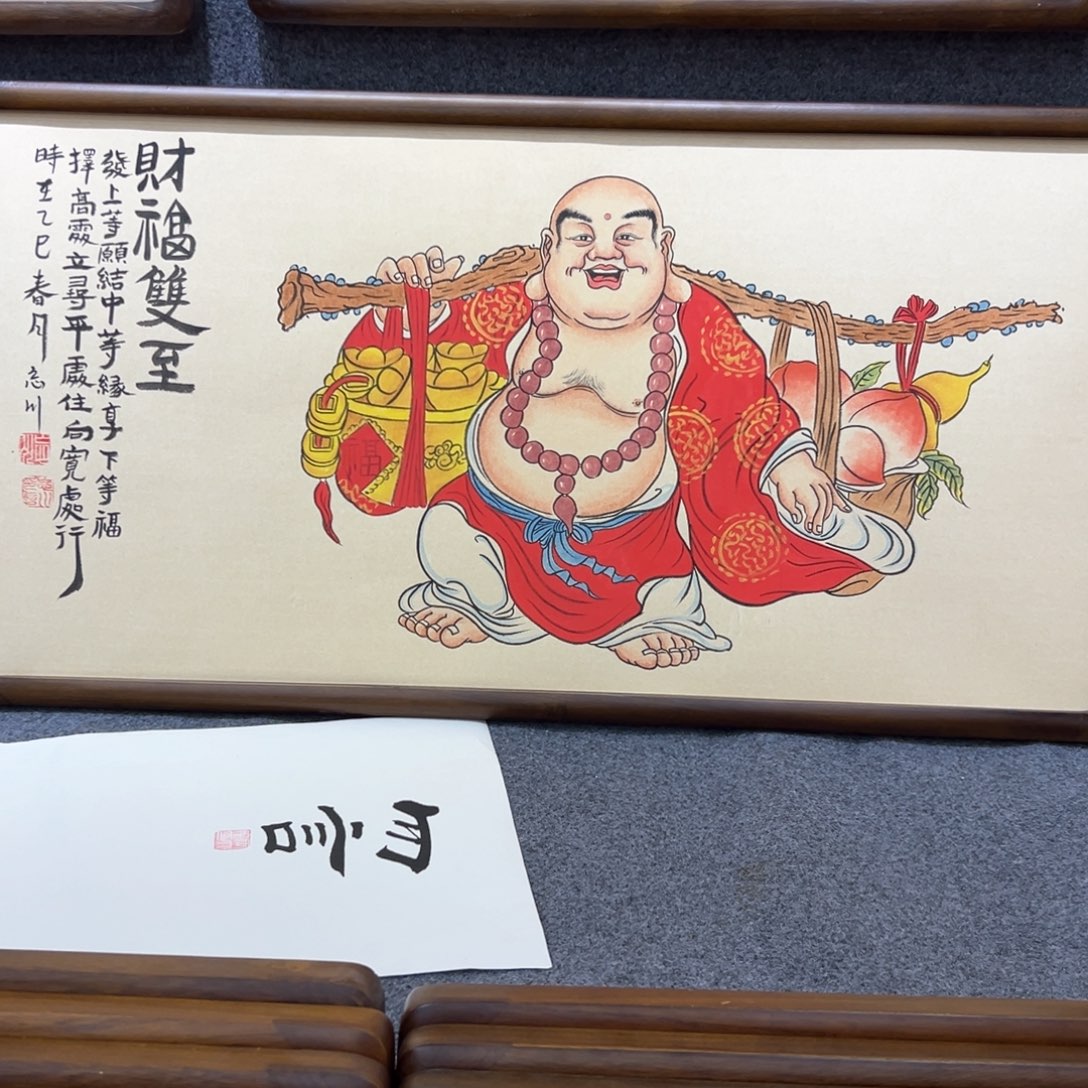 財福雙至
發上等願結中等緣享下等福
擇高處立尋平處住向寬處行
時在乙巳春月
福